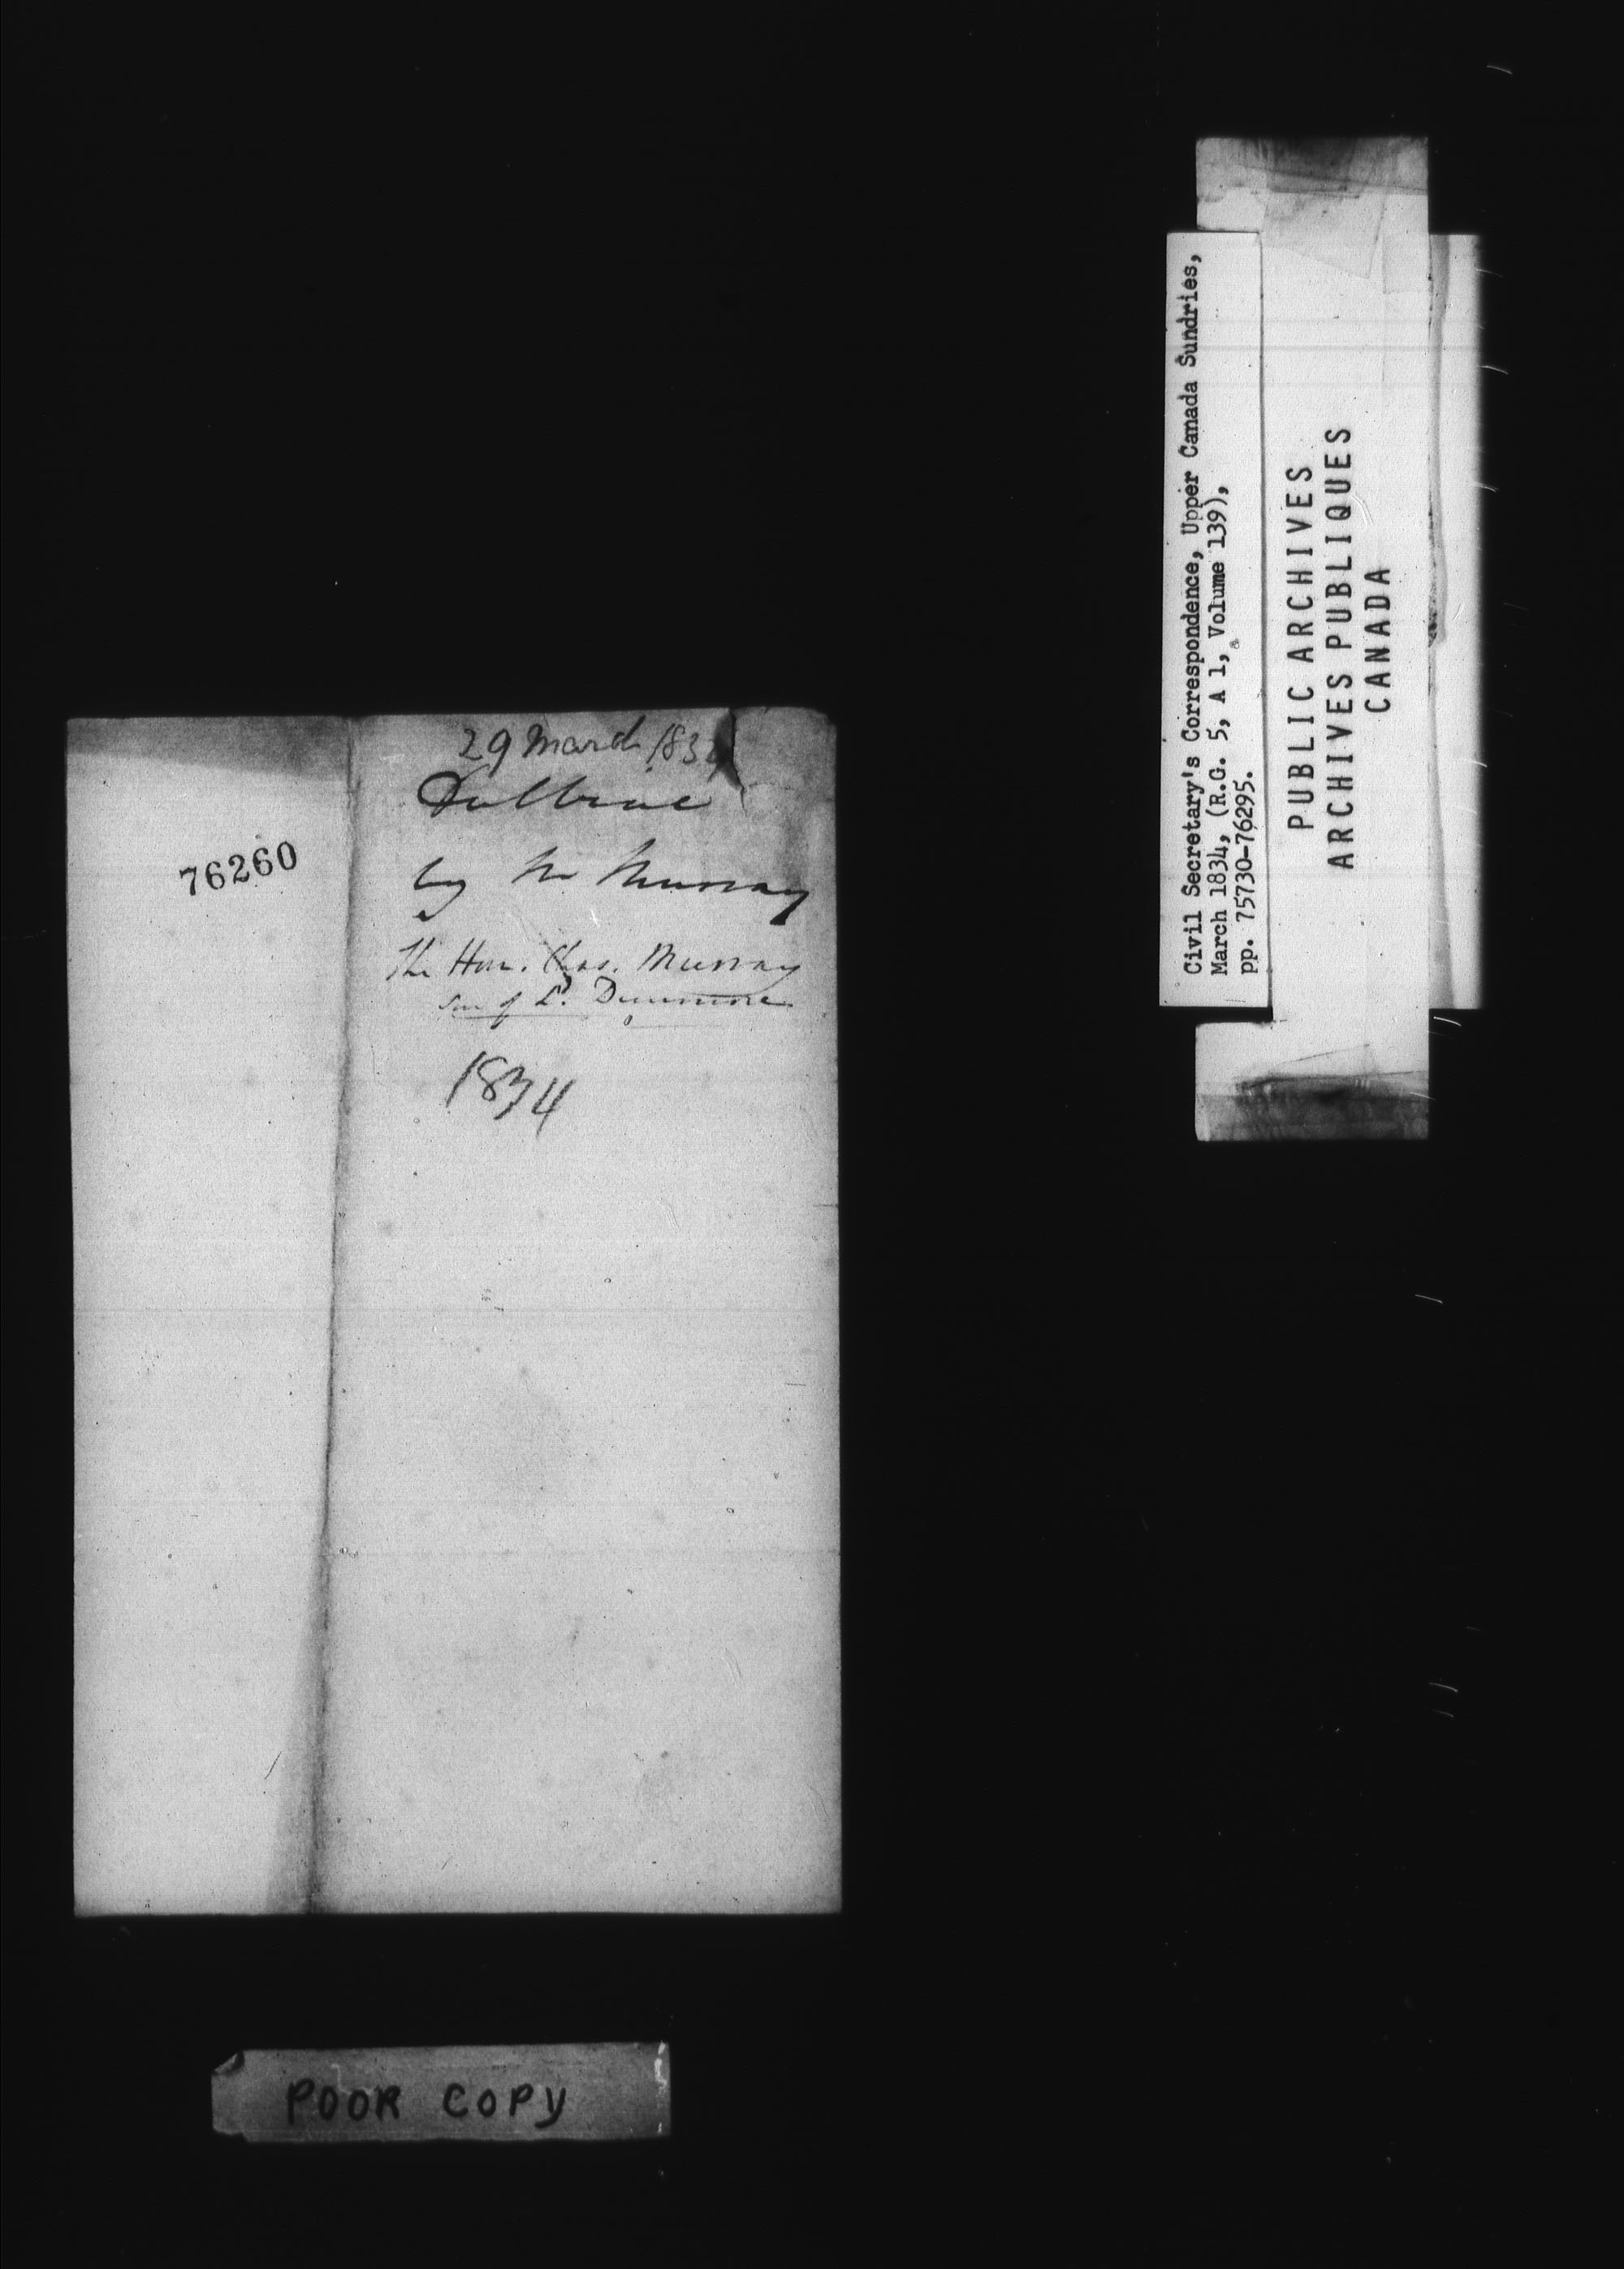 29 March 1834
by Mr Murray
The Hon. Chas. Murray
son of L. Dunmore
1834
76260
POOR COPY
Civil Secretary's Correspondence, Upper Canada Sundries,
March 1834, (R.G. 5, A 1, Volume 139),
pp. 75730-76295.
PUBLIC ARCHIVES
ARCHIVES PUBLIQUES
CANADA